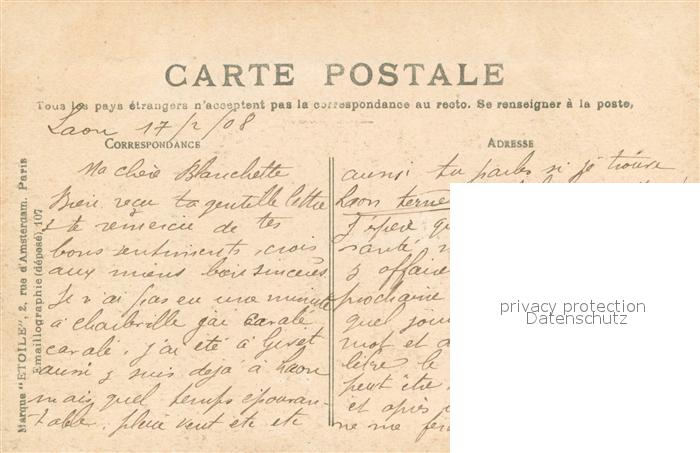 CARTE POSTALE
Tous les pays étrangers n'acceptent pas la correspondance au recto. Se renseigner à la poste,
Laon 17/2/08
CORRESPONDANCE
ADRESSE
Ma chère Blanchette
Bien reçu ta gentille lettre
& te remercie de tes
bons sentiments, crois
aux miens bien sincères
Je n'ai pas eu une minute
à Charleville j'ai cavalé
cavalé, j'ai été à Givet
aussi & suis dejà à Laon
mais quel temps épouvan-
table, pluie vent etc etc
aussi tu parles si je trouve
Laon terne
J'espère qu
santé
& affaire
prochaine
quel jour
mot et d
lire le
peut être
et après
ne me fer
Marque "ETOILE", 2, rue d'Amsterdam, Paris
Emaillographie (déposé) 107
privacy protection
Datenschutz